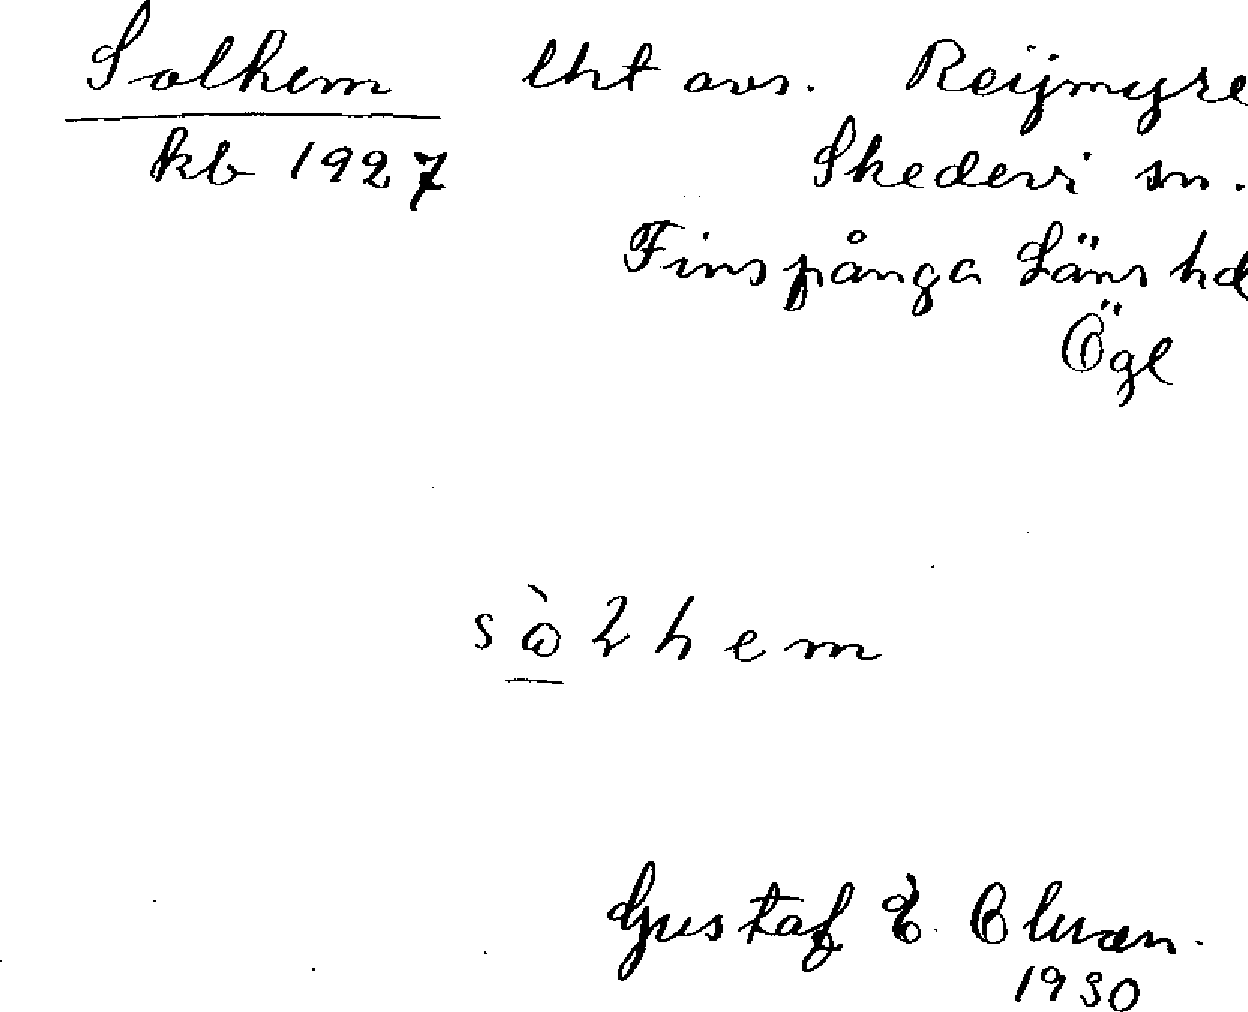 Solhem lht avs. Reijmyre
kb 1927 Skedevi sn.
Finspånga Läns hd
Ögl
sò2hem
Gustaf E.
1930